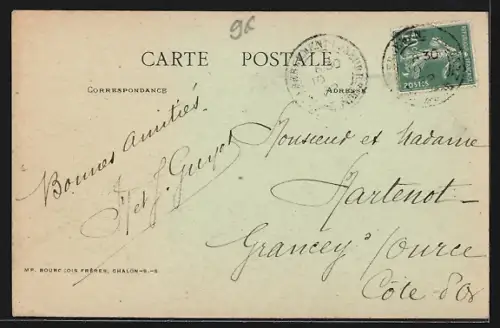 9c
CARTE POSTALE
CORRESPONDANCE
ADRESSE
POSTES
Bonnes amitiés
et J. Guyot
Monsieur et Madame
Martenot
Grancey s/Ource
Côte-d'Or
MP. BOURGEOIS FRÈRES, CHALON-S.-S.